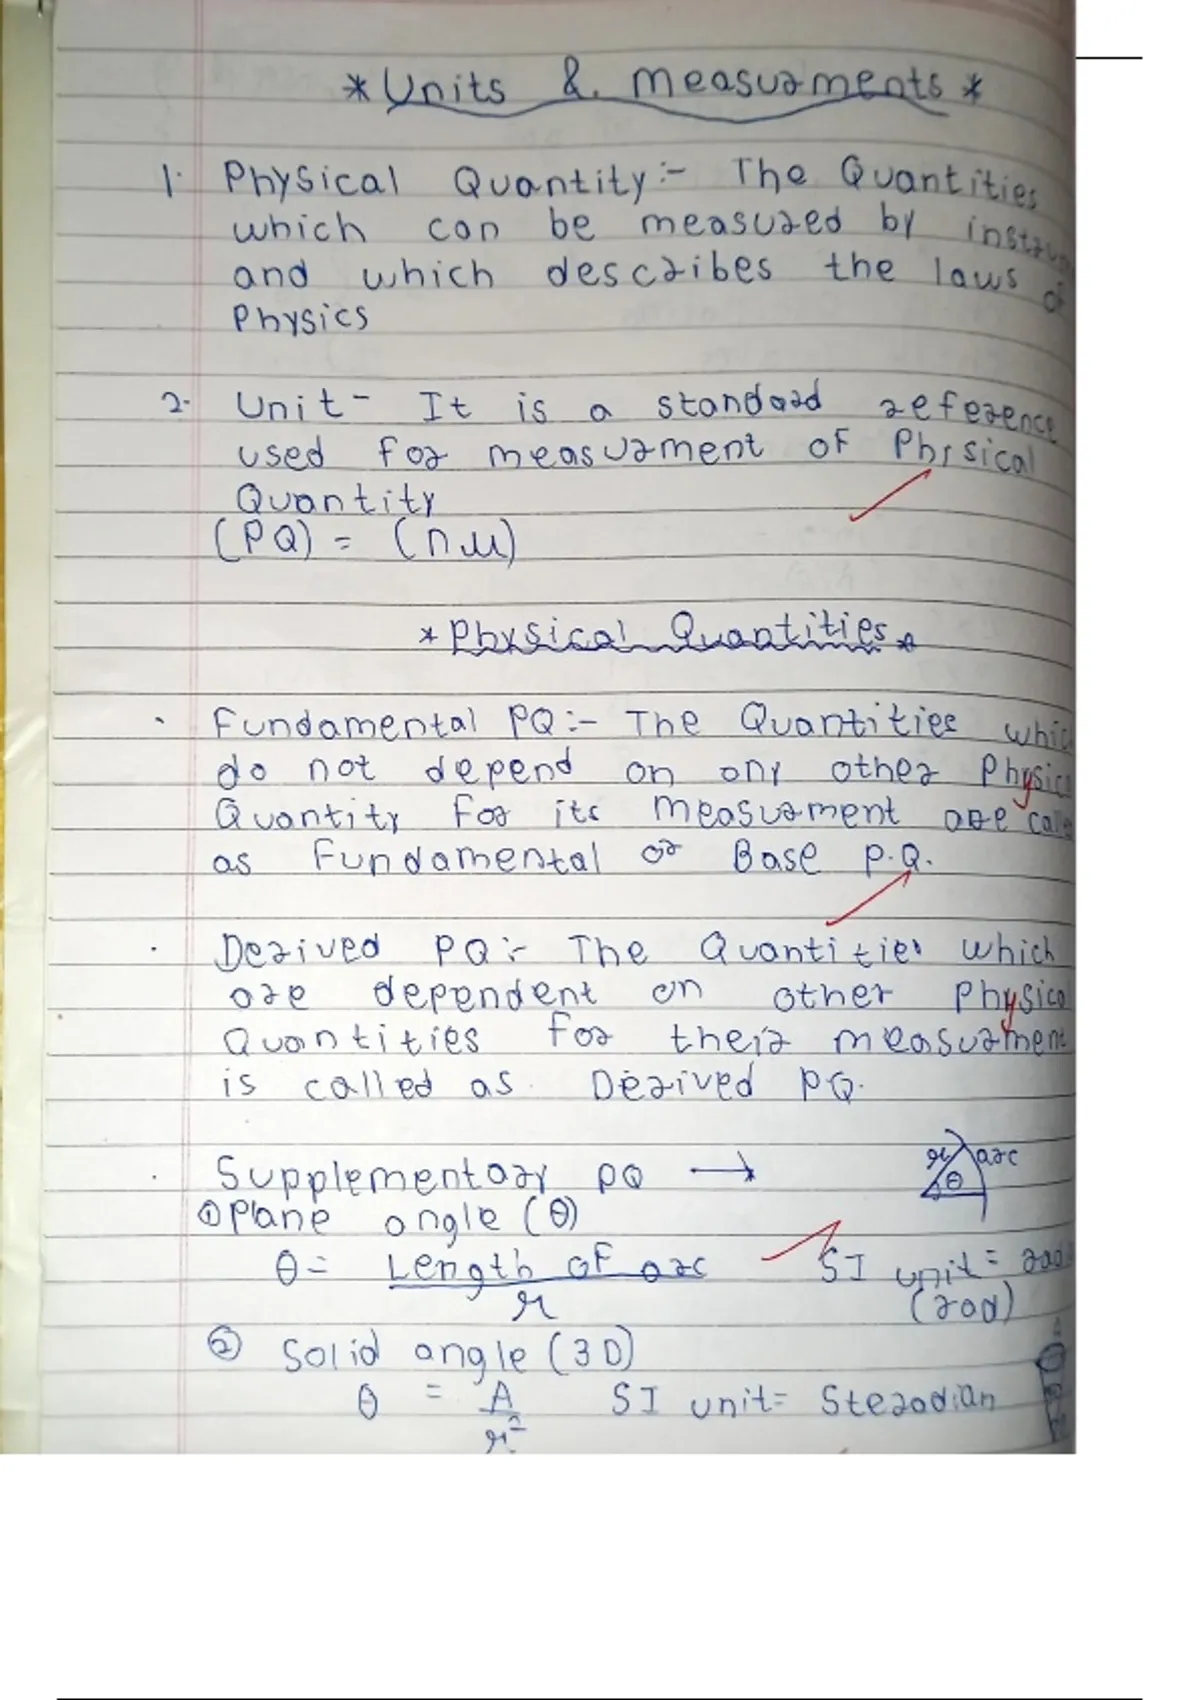 * Units & measurments *
1. Physical Quantity :- The Quantities
which can be measured by
and which describes the laws of
Physics
2- Unit - It is a standard reference
used for measurment of Physical
Quantity
(PQ) = (nu)
* Physical Quantities *
· Fundamental PQ :- The Quantities which
do not depend on any other Physical
Quantity for its measurment are called
as Fundamental or Base P.Q.
· Derived PQ :- The Quantities which
are dependent on other Physical
Quantities for their measurment
is called as Derived PQ.
· Supplementary PQ → r arc θ
① Plane angle (θ)
θ = Length of arc SI unit =
r (rad)
② Solid angle (3D)
θ = A SI unit = Steradian
r²